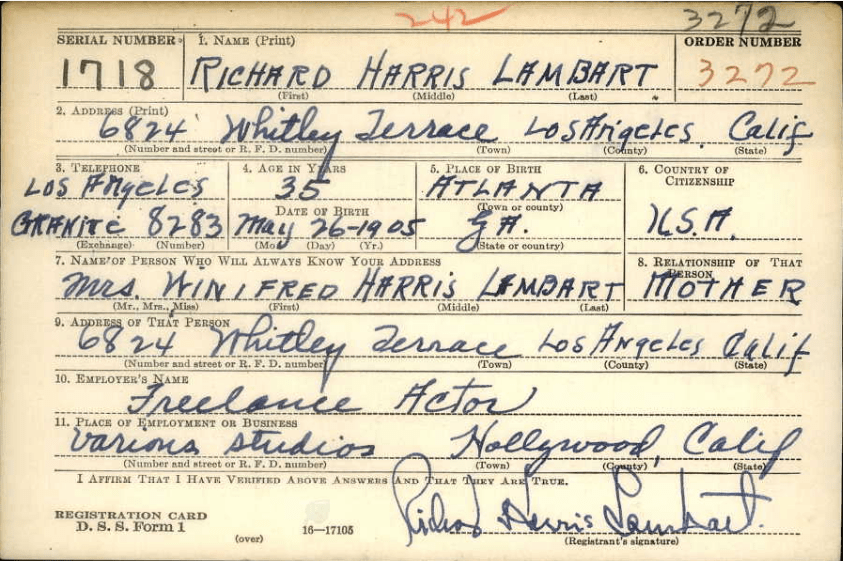 242
3272
SERIAL NUMBER
1. NAME (Print)
ORDER NUMBER
1718
RICHARD HARRIS LAMBART
3272
(First) (Middle) (Last)
2. ADDRESS (Print)
6824 Whitley Terrace Los Angeles Calif
(Number and street or R. F. D. number) (Town) (County) (State)
3. TELEPHONE
4. AGE IN YEARS
5. PLACE OF BIRTH
6. COUNTRY OF
CITIZENSHIP
LOS ANGELES
35
ATLANTA
(Town or county)
DATE OF BIRTH
GRANITE 8283
May 26-1905
GA.
U.S.A.
(Exchange) (Number)
(Mo.) (Day) (Yr.)
(State or country)
7. NAME OF PERSON WHO WILL ALWAYS KNOW YOUR ADDRESS
8. RELATIONSHIP OF THAT
PERSON
Mrs. WINIFRED HARRIS LAMBART
MOTHER
(Mr., Mrs., Miss) (First) (Middle) (Last)
9. ADDRESS OF THAT PERSON
6824 Whitley Terrace Los Angeles Calif
(Number and street or R. F. D. number) (Town) (County) (State)
10. EMPLOYER'S NAME
Freelance Actor
11. PLACE OF EMPLOYMENT OR BUSINESS
Various Studios Hollywood, Calif
(Number and street or R. F. D. number) (Town) (County) (State)
I AFFIRM THAT I HAVE VERIFIED ABOVE ANSWERS AND THAT THEY ARE TRUE.
REGISTRATION CARD
D. S. S. Form 1
(over)
16—17105
Richard Harris Lambart.
(Registrant's signature)